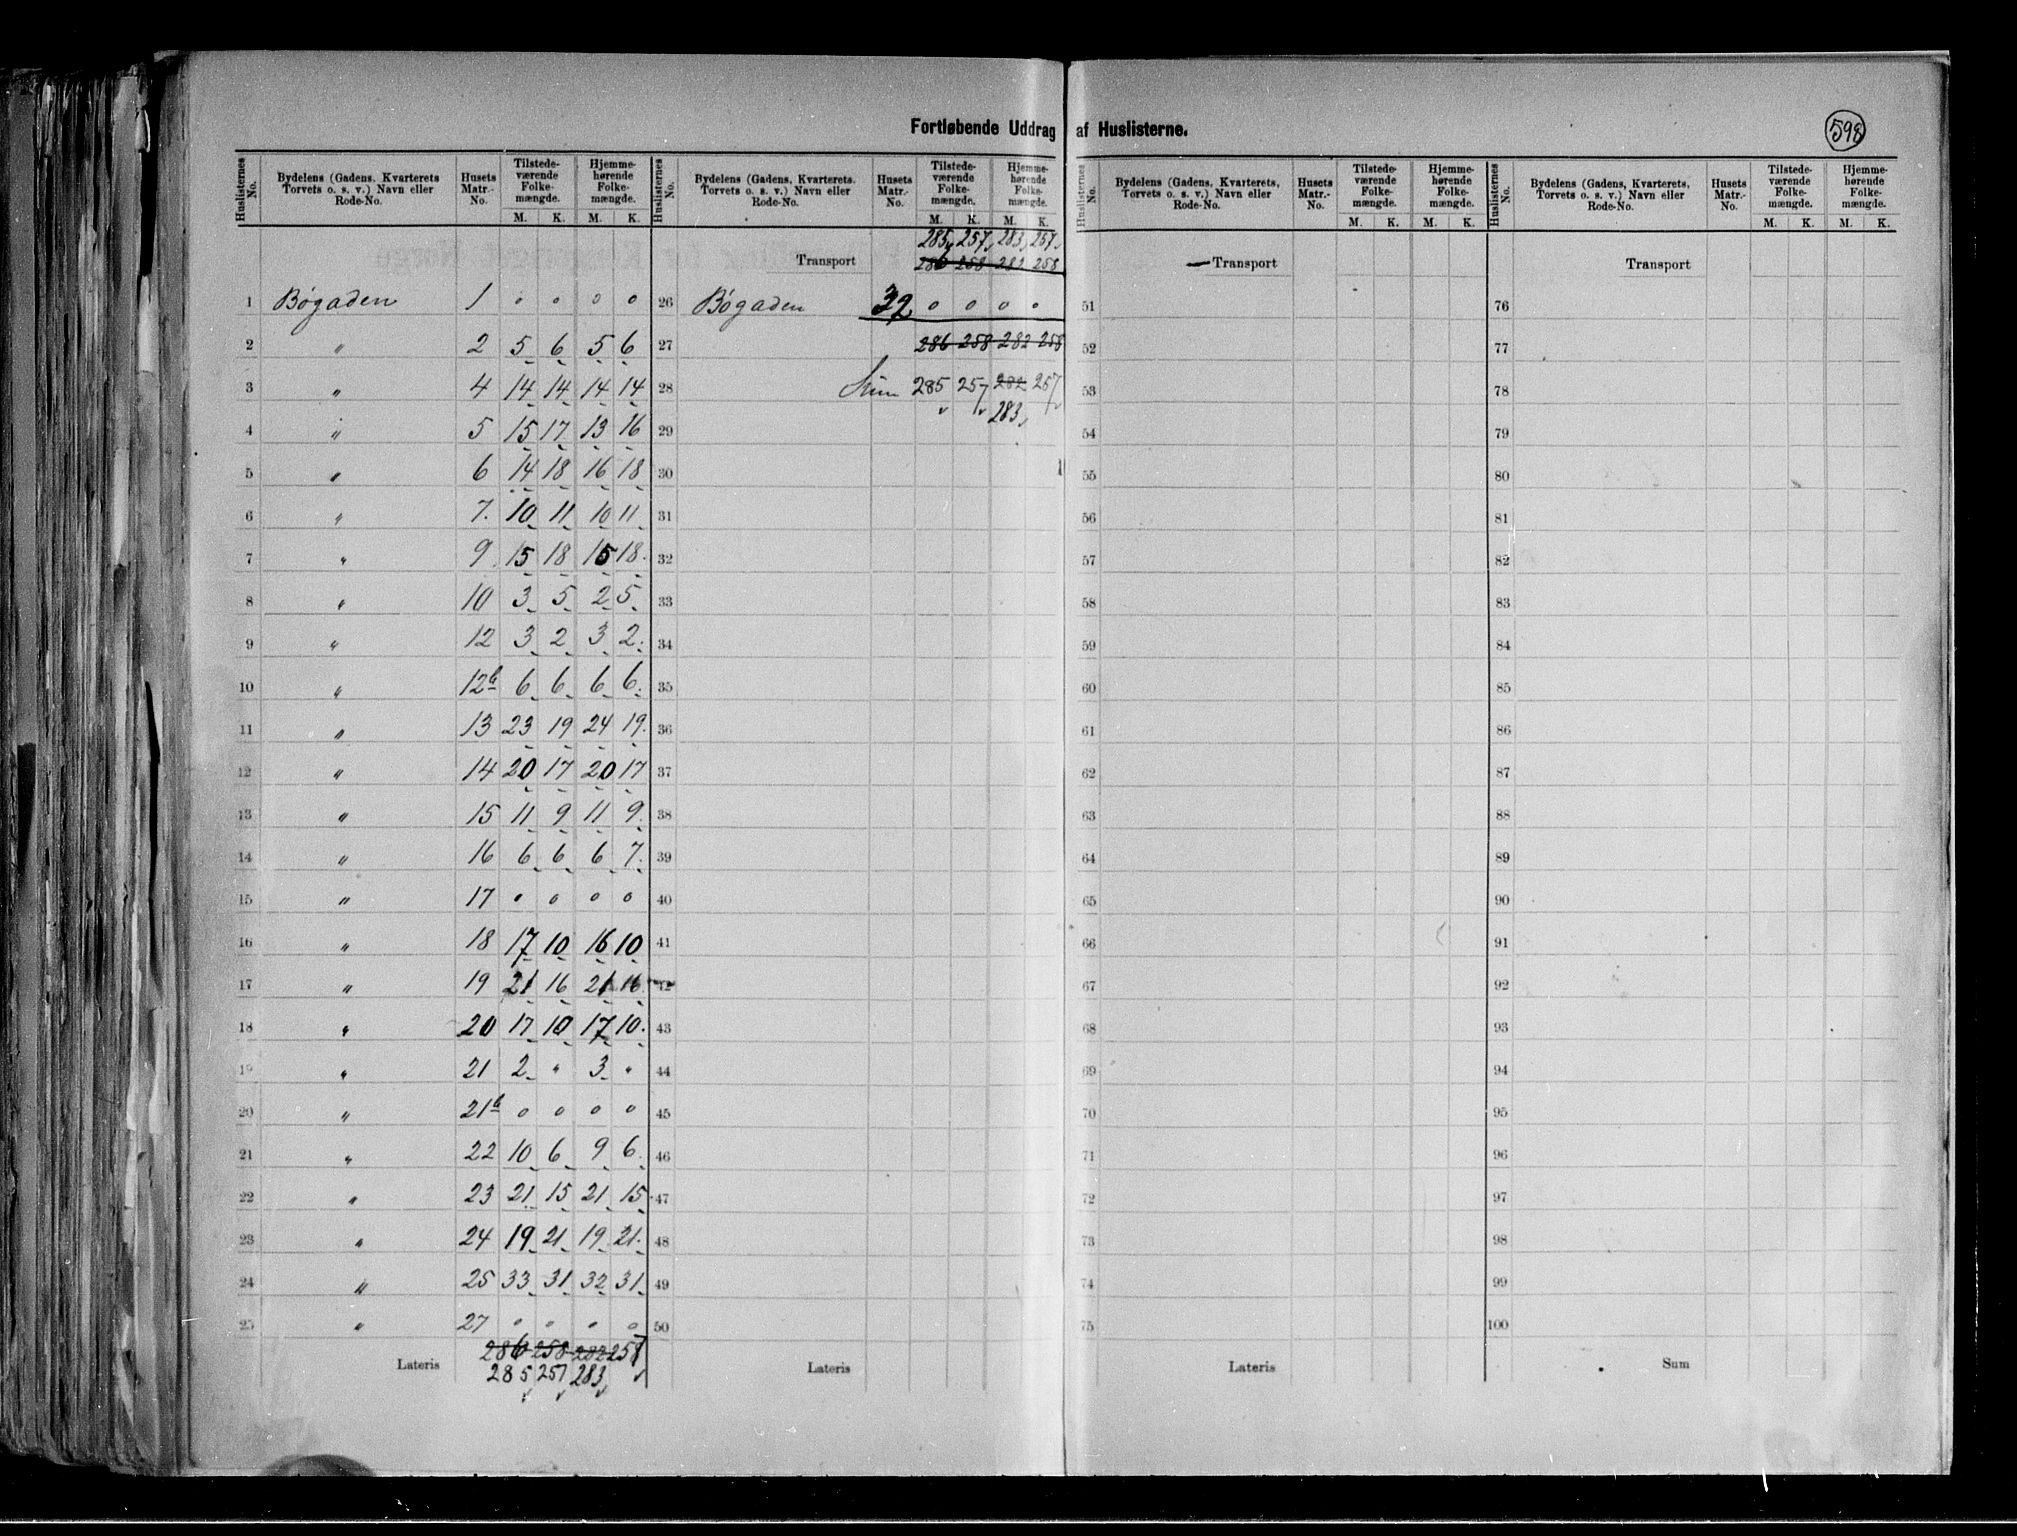 Fortløbende Uddrag af Huslisterne.
598
Huslisternes No. | Bydelens (Gadens, Kvarterets, Torvets o. s. v.) Navn eller Rode-No. | Husets Matr.-No. | Tilstedeværende Folkemængde. M. K. | Hjemmehørende Folkemængde. M. K.
1 Bøgaden 1 0 0 0 0
2 " 2 5 6 5 6
3 " 4 14 14 14 14
4 " 5 15 17 13 16
5 " 6 14 18 16 18
6 " 7. 10 11 10 11
7 " 9 15 18 15 18
8 " 10 3 5 2 5
9 " 12 3 2 3 2
10 " 12b 6 6 6 6
11 " 13 23 19 24 19
12 " 14 20 17 20 17
13 " 15 11 9 11 9
14 " 16 6 6 6 7
15 " 17 0 0 0 0
16 " 18 17 10 16 10
17 " 19 21 16 21 16
18 " 20 17 10 17 10
19 " 21 2 " 3 "
20 " 21b 0 0 0 0
21 " 22 10 6 9 6
22 " 23 21 15 21 15
23 " 24 19 21 19 21
24 " 25 33 31 32 31
25 " 27 0 0 0 0
286 258 282 257
Lateris 285 257 283
Huslisternes No. | Bydelens (Gadens, Kvarterets, Torvets o. s. v.) Navn eller Rode-No. | Husets Matr.-No. | Tilstedeværende Folkemængde. M. K. | Hjemmehørende Folkemængde. M. K.
285 257 283 257
Transport 286 258 282 258
26 Bøgaden 32 0 0 0 0
27 286 258 282 258
28 Sum 285 257 282 257
283
29
30
31
32
33
34
35
36
37
38
39
40
41
42
43
44
45
46
47
48
49
50
Lateris
Huslisternes No. | Bydelens (Gadens, Kvarterets, Torvets o. s. v.) Navn eller Rode-No. | Husets Matr.-No. | Tilstedeværende Folkemængde. M. K. | Hjemmehørende Folkemængde. M. K.
Transport
51
52
53
54
55
56
57
58
59
60
61
62
63
64
65
66
67
68
69
70
71
72
73
74
75
Lateris
Huslisternes No. | Bydelens (Gadens, Kvarterets, Torvets o. s. v.) Navn eller Rode-No. | Husets Matr.-No. | Tilstedeværende Folkemængde. M. K. | Hjemmehørende Folkemængde. M. K.
Transport
76
77
78
79
80
81
82
83
84
85
86
87
88
89
90
91
92
93
94
95
96
97
98
99
100
Sum